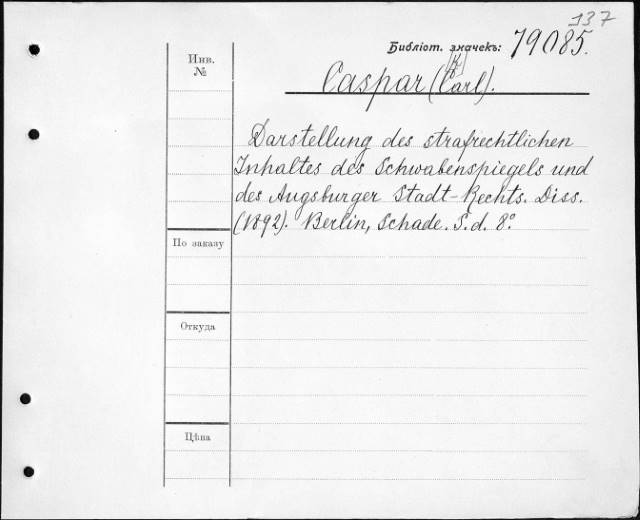 137
Библіот. значекъ: 79085.
Инв.
№
(K)
Caspar (Carl).
Darstellung des strafrechtlichen
Inhaltes des Schwabenspiegels und
des Augsburger Stadt-Rechts. Diss.
(1892). Berlin, Schade. S. d. 8°.
По заказу
Откуда
Цѣна